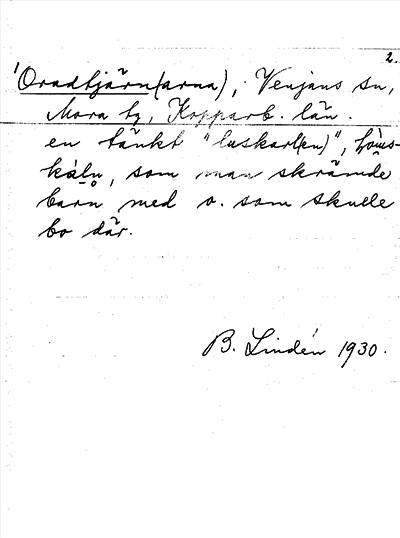 2.
'Oradtjärn(arna), Venjans sn,
Mora tg, Kopparb. län.
en tänkt "luskarl(en)", löus-
kálņ, som man skrämde
barn med o. som skulle
bo där.
B. Lindén 1930.